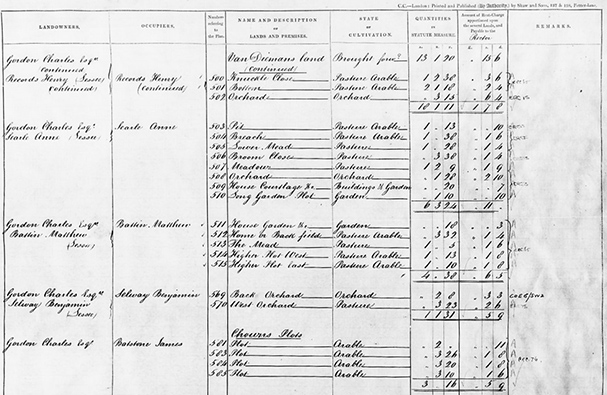 C.C.—London: Printed and Published (by Authority,) by Shaw and Sons, Fetter-Lane.
LANDOWNERS. OCCUPIERS. Numbers referring to the Plan. NAME AND DESCRIPTION OF LANDS AND PREMISES. STATE OF CULTIVATION. QUANTITIES IN STATUTE MEASURE. Amount of Rent-Charge apportioned upon the several Lands, and Payable to the Rector REMARKS.
Gordon Charles Esqre Van Diemans Land Brought forwd 13 1 20 15 6
continued (continued)
Records Henry (Lessee) Records Henry 500 Knuckle Close Pasture Arable 1 2 30 3 6
(continued) (continued) 501 Bottom Pasture Arable 2 1 10 2 4
502 Orchard Orchard 3 15 6 4
18 1 11 1 7 8
Gordon Charles Esqr Searle Anne 503 Pit Pasture Arable 1 13 10
Searle Anne (Lessee) 504 Breach Pasture Arable 1 6
505 Lower Mead Pasture Arable 1 4
506 Broom Close Pasture 3 30 1 4
507 Meadow Pasture 1 2 9 1 9
508 Orchard Orchard 1 20 2 10
509 House Courtlage &c Buildings & Garden 20 7
510 Long Garden Plot Garden 1 10 10
6 3 24 11
Gordon Charles Esqre Battin Matthew 511 House Garden &c Garden 18 3
Battin Matthew 512 Home or Back field Pasture Arable 3 32 1 4
(Lessee) 513 The Mead Pasture 1 5 1 6
514 Higher Plot West Pasture Arable 1 13 1 8
515 Higher Plot East Pasture Arable 1 10 1 8
4 38 6 5
Gordon Charles Esqre Selway Benjamin 569 Back Orchard Orchard 2 8 3 3
Selway Benjamin 570 West Orchard Pasture 3 23 2 6
(Lessee) 1 1 31 5 9
Chowns Plots
Gordon Charles Esqr Batstone James 581 Plot Arable 2 11
583 Plot Arable 3 26 1 8
584 Plot Arable 3 20 1 8
585 Plot Arable 3 10 1 6
3 16 5 9